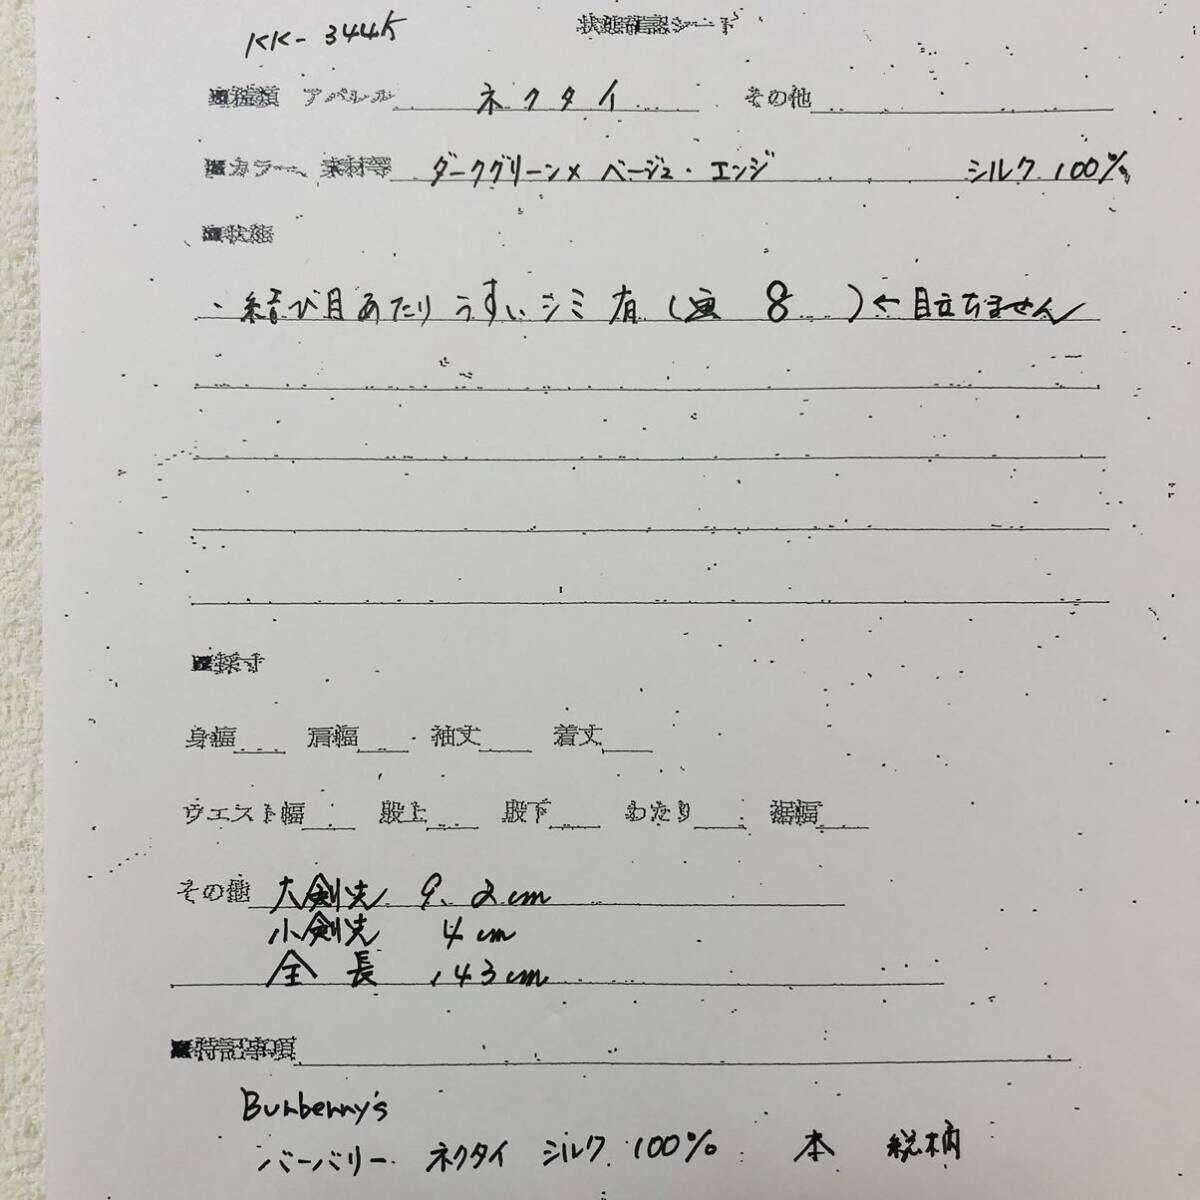 KK-344K
状態確認シート
■種類 アパレル ネクタイ その他
■カラー、素材等 ダークグリーン×ベージュ・エンジ シルク 100%
■状態
・結び目あたりうすいシミ有(画 8 )←目立ちません
■採寸
身幅 肩幅 袖丈 着丈
ウエスト幅 股上 股下 わたり 裾幅
その他 大剣先 9.2cm
小剣先 4cm
全長 143cm
■特記事項
Burberry's
バーバリー ネクタイ シルク 100% 本 総柄